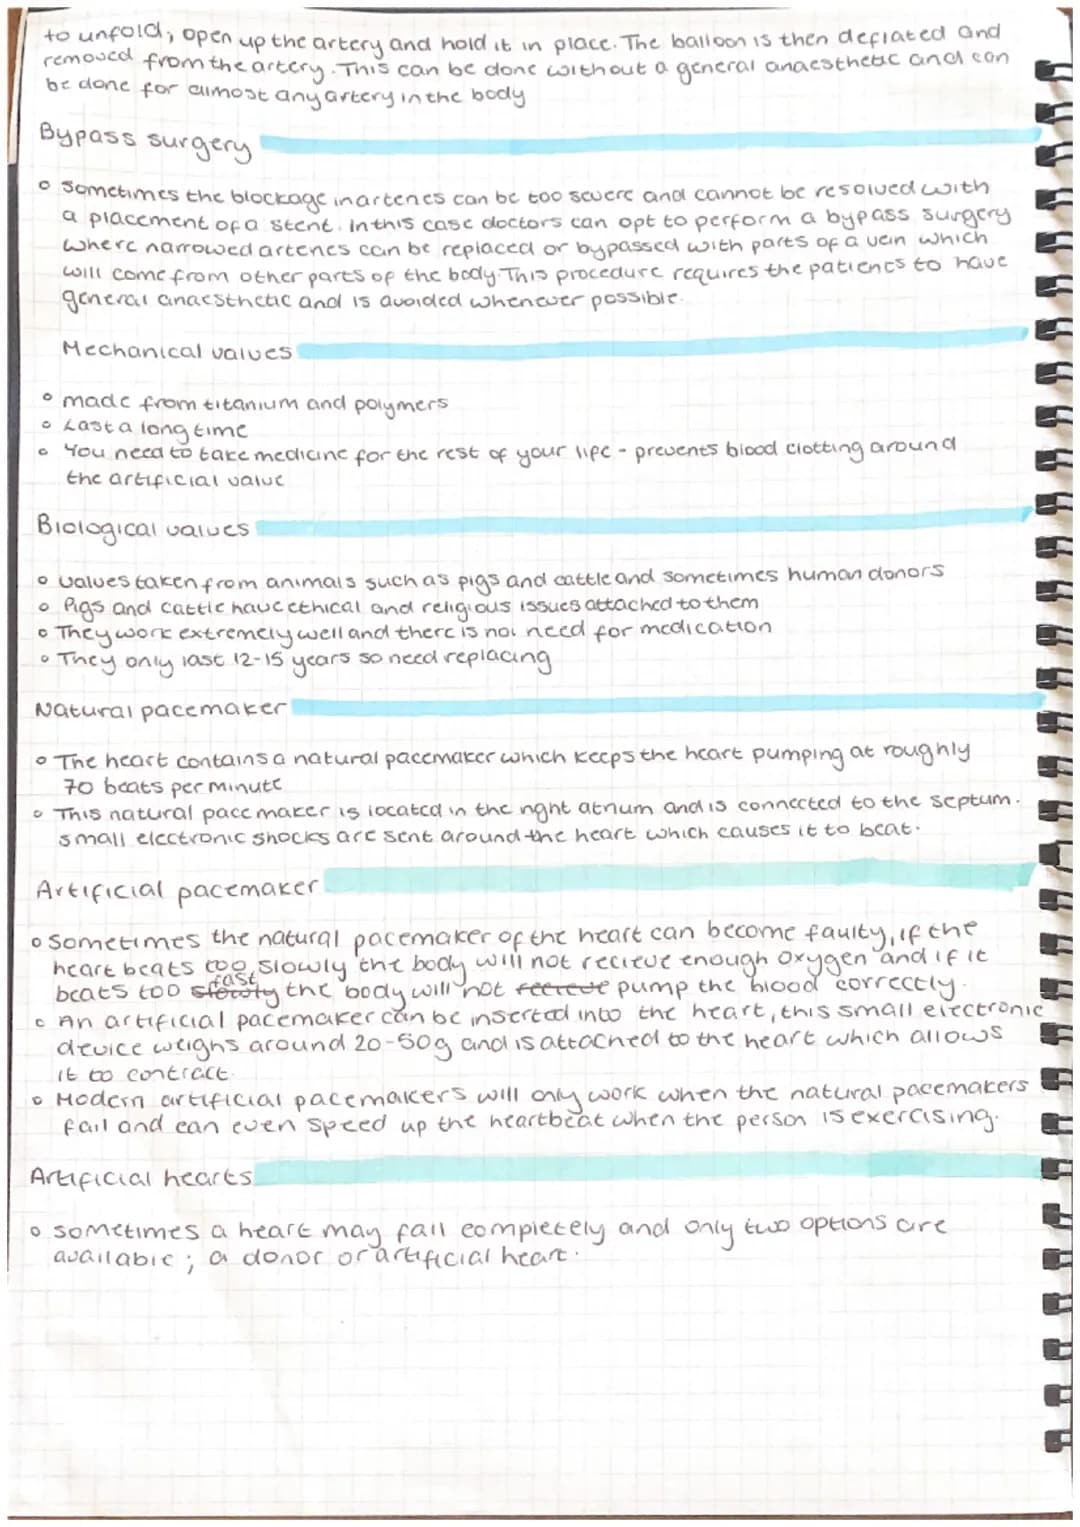 to unfold, open up the artery and hold it in place. The balloon is then deflated and
removed from the artery. This can be done without a general anaesthetic and can
be done for almost any artery in the body
Bypass surgery
Sometimes the blockage in arteries can be too severe and cannot be resolved with
a placement of a stent. In this case doctors can opt to perform a bypass surgery
where narrowed arteries can be replaced or bypassed with parts of a vein which
will come from other parts of the body. This procedure requires the patients to have
general anaesthetic and is avoided whenever possible.
Mechanical valves
made from titanium and polymers
Last a long time
You need to take medicine for the rest of your life - prevents blood clotting around
the artificial valve
Biological valves
valves taken from animals such as pigs and cattle and sometimes human donors
Pigs and cattle have ethical and religious issues attached to them
They work extremely well and there is no need for medication
They only last 12-15 years so need replacing
Natural pacemaker
The heart contains a natural pacemaker which keeps the heart pumping at roughly
70 beats per minute
This natural pacemaker is located in the right atrium and is connected to the septum.
small electronic shocks are sent around the heart which causes it to beat.
Artificial pacemaker
Sometimes the natural pacemaker of the heart can become faulty, if the
heart beats too slowly the body will not recieve enough oxygen and if it
beats too slowly fast the body will not recieve pump the blood correctly.
An artificial pacemaker can be inserted into the heart, this small electronic
device weighs around 20-50g and is attached to the heart which allows
it to contract.
Modern artificial pacemakers will only work when the natural pacemakers
fail and can even speed up the heartbeat when the person is exercising.
Artificial hearts
sometimes a heart may fail completely and only two options are
available; a donor or artificial heart.